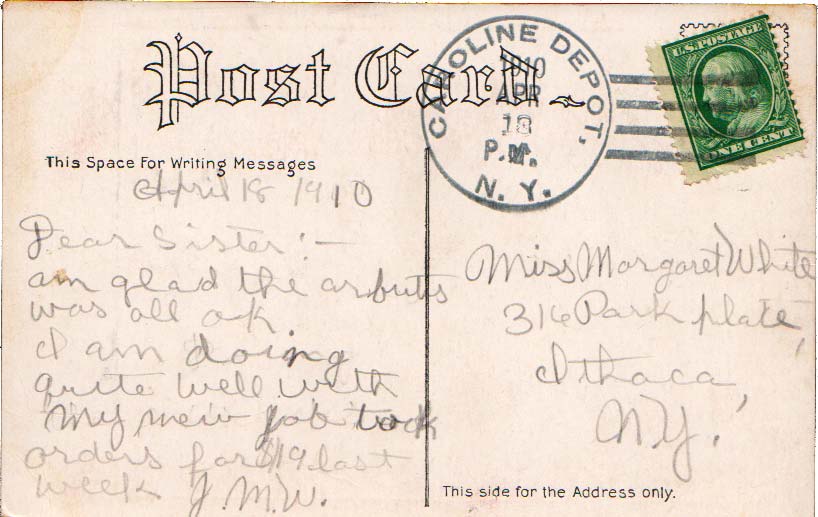 Post Card
CAROLINE DEPOT,
1910
APR
18
P.M.
N. Y.
U.S. POSTAGE
ONE CENT
This Space For Writing Messages
April 18 1910
Dear Sister:-
am glad the arbutis
was all o.k.
I am doing
quite well with
my new job took
orders for $19 last
week J.M.W.
Miss Margaret White
316 Park place,
Ithaca,
N.Y.
This side for the Address only.